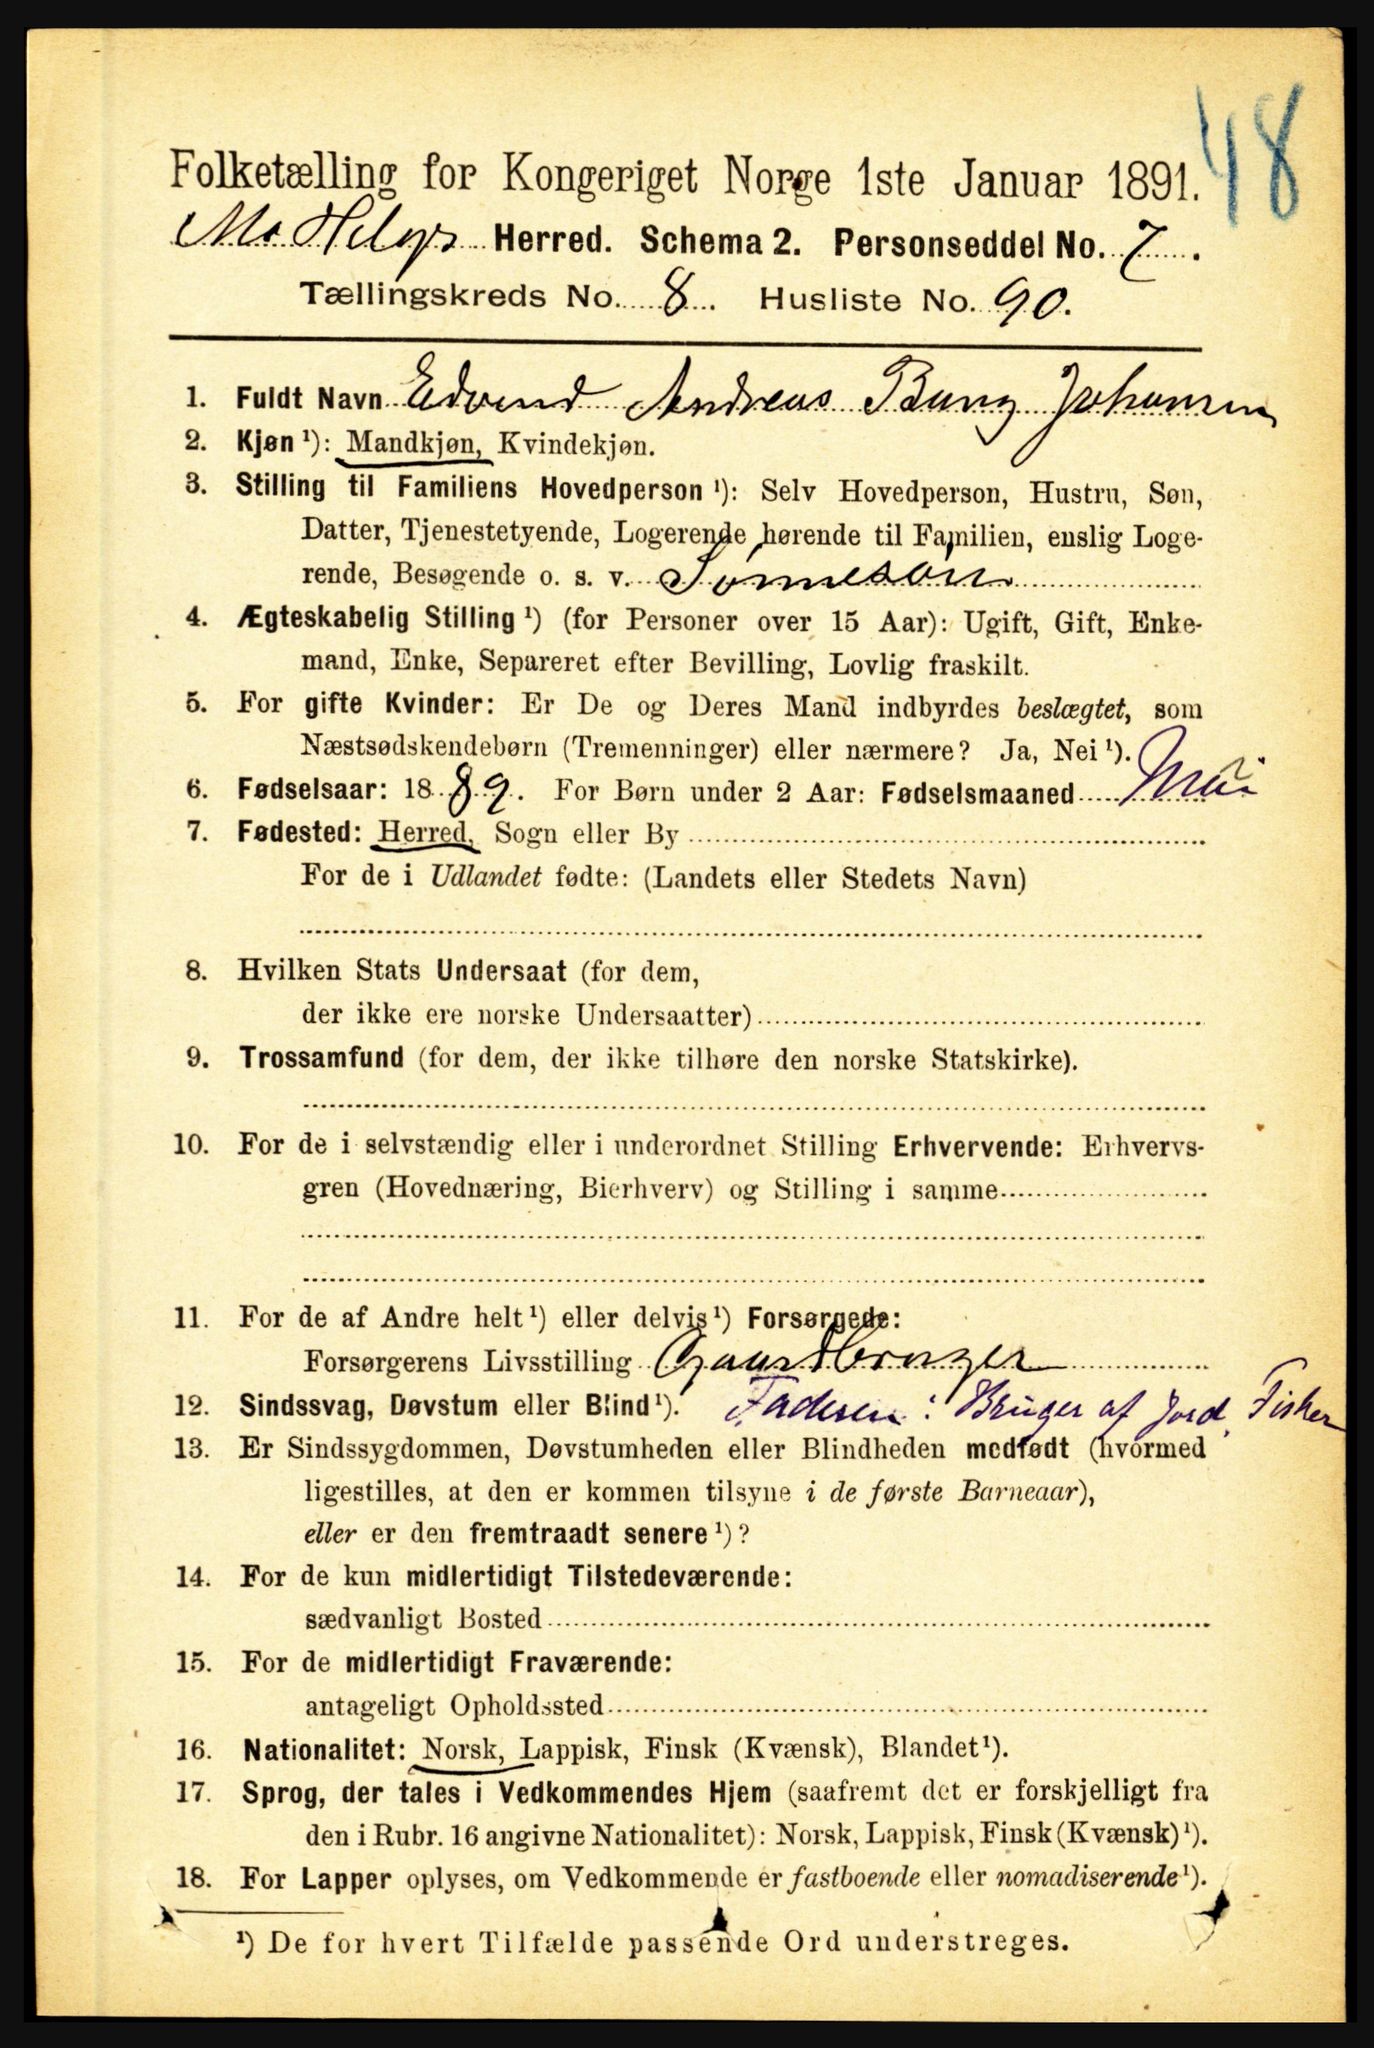 48
Folketælling for Kongeriget Norge 1ste Januar 1891.
Mo Helgs Herred. Schema 2. Personseddel No. 7.
Tællingskreds No. 8. Husliste No. 90.
1. Fuldt Navn Edvend Andreas Bang Johansen
2. Kjøn ¹): Mandkjøn, Kvindekjøn.
3. Stilling til Familiens Hovedperson ¹): Selv Hovedperson, Hustru, Søn,
Datter, Tjenestetyende, Logerende hørende til Familien, enslig Loge-
rende, Besøgende o. s. v. Sønnesøn
4. Ægteskabelig Stilling ¹) (for Personer over 15 Aar): Ugift, Gift, Enke-
mand, Enke, Separeret efter Bevilling, Lovlig fraskilt.
5. For gifte Kvinder: Er De og Deres Mand indbyrdes beslægtet, som
Næstsødskendebørn (Tremenninger) eller nærmere? Ja, Nei ¹).
6. Fødselsaar: 1889. For Børn under 2 Aar: Fødselsmaaned Mai
7. Fødested: Herred, Sogn eller By
For de i Udlandet fødte: (Landets eller Stedets Navn)
8. Hvilken Stats Undersaat (for dem,
der ikke ere norske Undersaatter)
9. Trossamfund (for dem, der ikke tilhøre den norske Statskirke).
10. For de i selvstændig eller i underordnet Stilling Erhvervende: Erhvervs-
gren (Hovednæring, Bierhverv) og Stilling i samme
11. For de af Andre helt ¹) eller delvis ¹) Forsørgede:
Forsørgerens Livsstilling Gaardbruger
12. Sindssvag, Døvstum eller Blind ¹). Faderen: Bruger af Jord, Fisker
13. Er Sindssygdommen, Døvstumheden eller Blindheden medfødt (hvormed
ligestilles, at den er kommen tilsyne i de første Barneaar),
eller er den fremtraadt senere ¹)?
14. For de kun midlertidigt Tilstedeværende:
sædvanligt Bosted
15. For de midlertidigt Fraværende:
antageligt Opholdssted
16. Nationalitet: Norsk, Lappisk, Finsk (Kvænsk), Blandet ¹).
17. Sprog, der tales i Vedkommendes Hjem (saafremt det er forskjelligt fra
den i Rubr. 16 angivne Nationalitet): Norsk, Lappisk, Finsk (Kvænsk) ¹).
18. For Lapper oplyses, om Vedkommende er fastboende eller nomadiserende ¹).
¹) De for hvert Tilfælde passende Ord understreges.